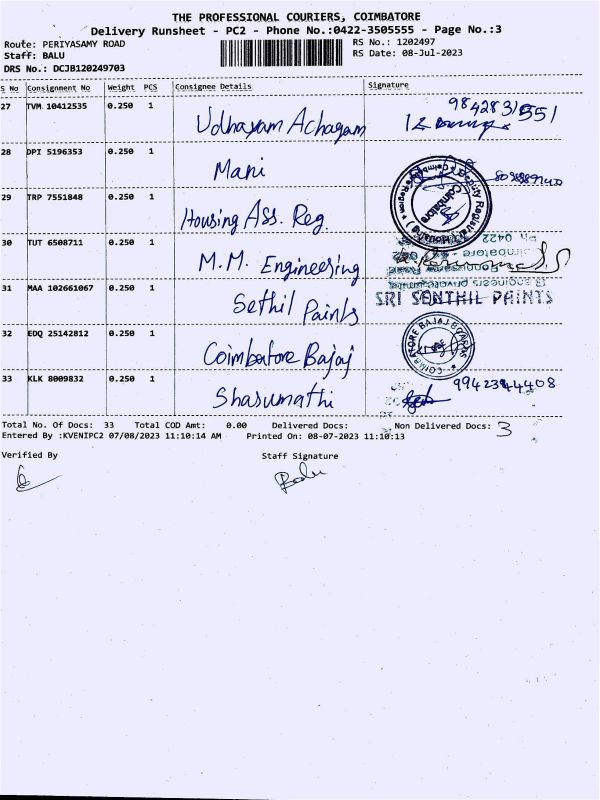 THE PROFESSIONAL COURIERS, COIMBATORE
Delivery Runsheet - PC2 - Phone No.:0422-3505555 - Page No.:3
Route: PERIYASAMY ROAD RS No.: 1202497
Staff: BALU RS Date: 08-Jul-2023
DRS No.: DCJB120249703
S No Consignment No Weight PCS Consignee Details Signature
27 TVM 10412535 0.250 1 Udhayam Achagam
28 DPI 5196353 0.250 1 Mani
29 TRP 7551848 0.250 1 Housing Ass. Reg.
30 TUT 6508711 0.250 1 M.M. Engineering
31 MAA 102661067 0.250 1 Sethil Paints SRI SENTHIL PAINTS
32 EDQ 25142812 0.250 1 Coimbatore Bajaj
33 KLK 8009832 0.250 1 Shasumathi
Total No. Of Docs: 33 Total COD Amt: 0.00 Delivered Docs: Non Delivered Docs: 3
Entered By :KVENIPC2 07/08/2023 11:10:14 AM Printed On: 08-07-2023 11:10:13
Verified By Staff Signature
Balu